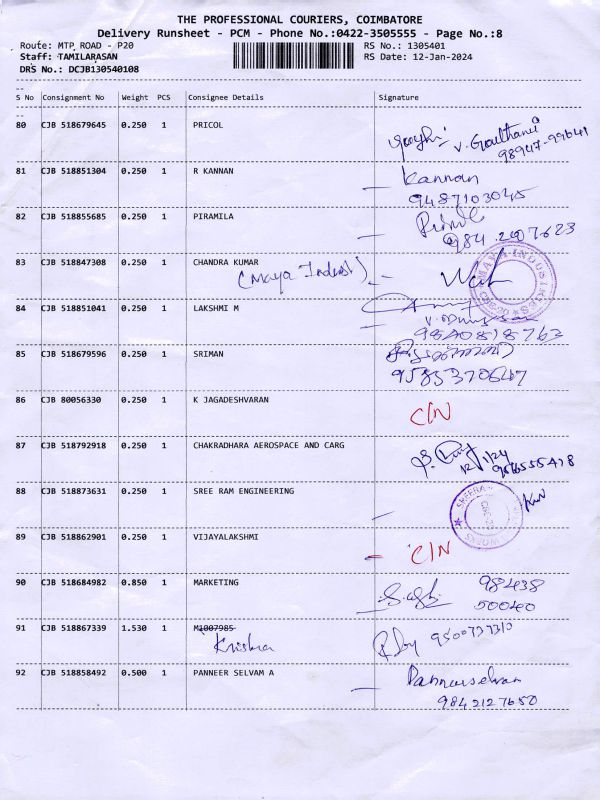 THE PROFESSIONAL COURIERS, COIMBATORE
Delivery Runsheet - PCM - Phone No.:0422-3505555 - Page No.:8
Route: MTP ROAD - P20 RS No.: 1305401
Staff: TAMILARASAN RS Date: 12-Jan-2024
DRS No.: DCJB130540108
S No Consignment No Weight PCS Consignee Details Signature
80 CJB 518679645 0.250 1 PRICOL
V. Gowthami
98947-99641
81 CJB 518851304 0.250 1 R KANNAN Kannan
9487103045
82 CJB 518855685 0.250 1 PIRAMILA
984 2907623
83 CJB 518847308 0.250 1 CHANDRA KUMAR
(Maya Indust)
MAYA INDUSTRIES
CBE-20
84 CJB 518851041 0.250 1 LAKSHMI M
9840818763
85 CJB 518679596 0.250 1 SRIMAN
9585370647
86 CJB 80056330 0.250 1 K JAGADESHVARAN C/N
87 CJB 518792918 0.250 1 CHAKRADHARA AEROSPACE AND CARG
12/1/24
88 CJB 518873631 0.250 1 SREE RAM ENGINEERING
WORKS
89 CJB 518862901 0.250 1 VIJAYALAKSHMI C/N
90 CJB 518684982 0.850 1 MARKETING 98438
50040
91 CJB 518867339 1.530 1 M1007985
Krishna 9500737310
92 CJB 518858492 0.500 1 PANNEER SELVAM A Pannerselvan
9842127650